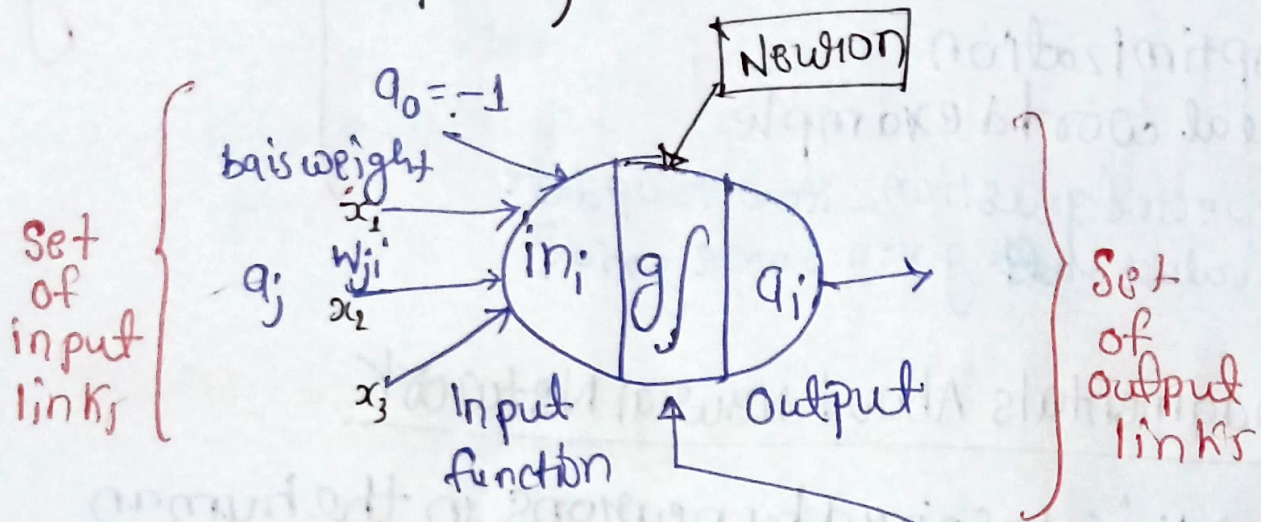 Neuron
a₀ = -1
bais weight
x₁
Set
of
input
links
aj
wji
x₂
x₃
ini
g
ai
Input
function
Output
Set
of
Output
links